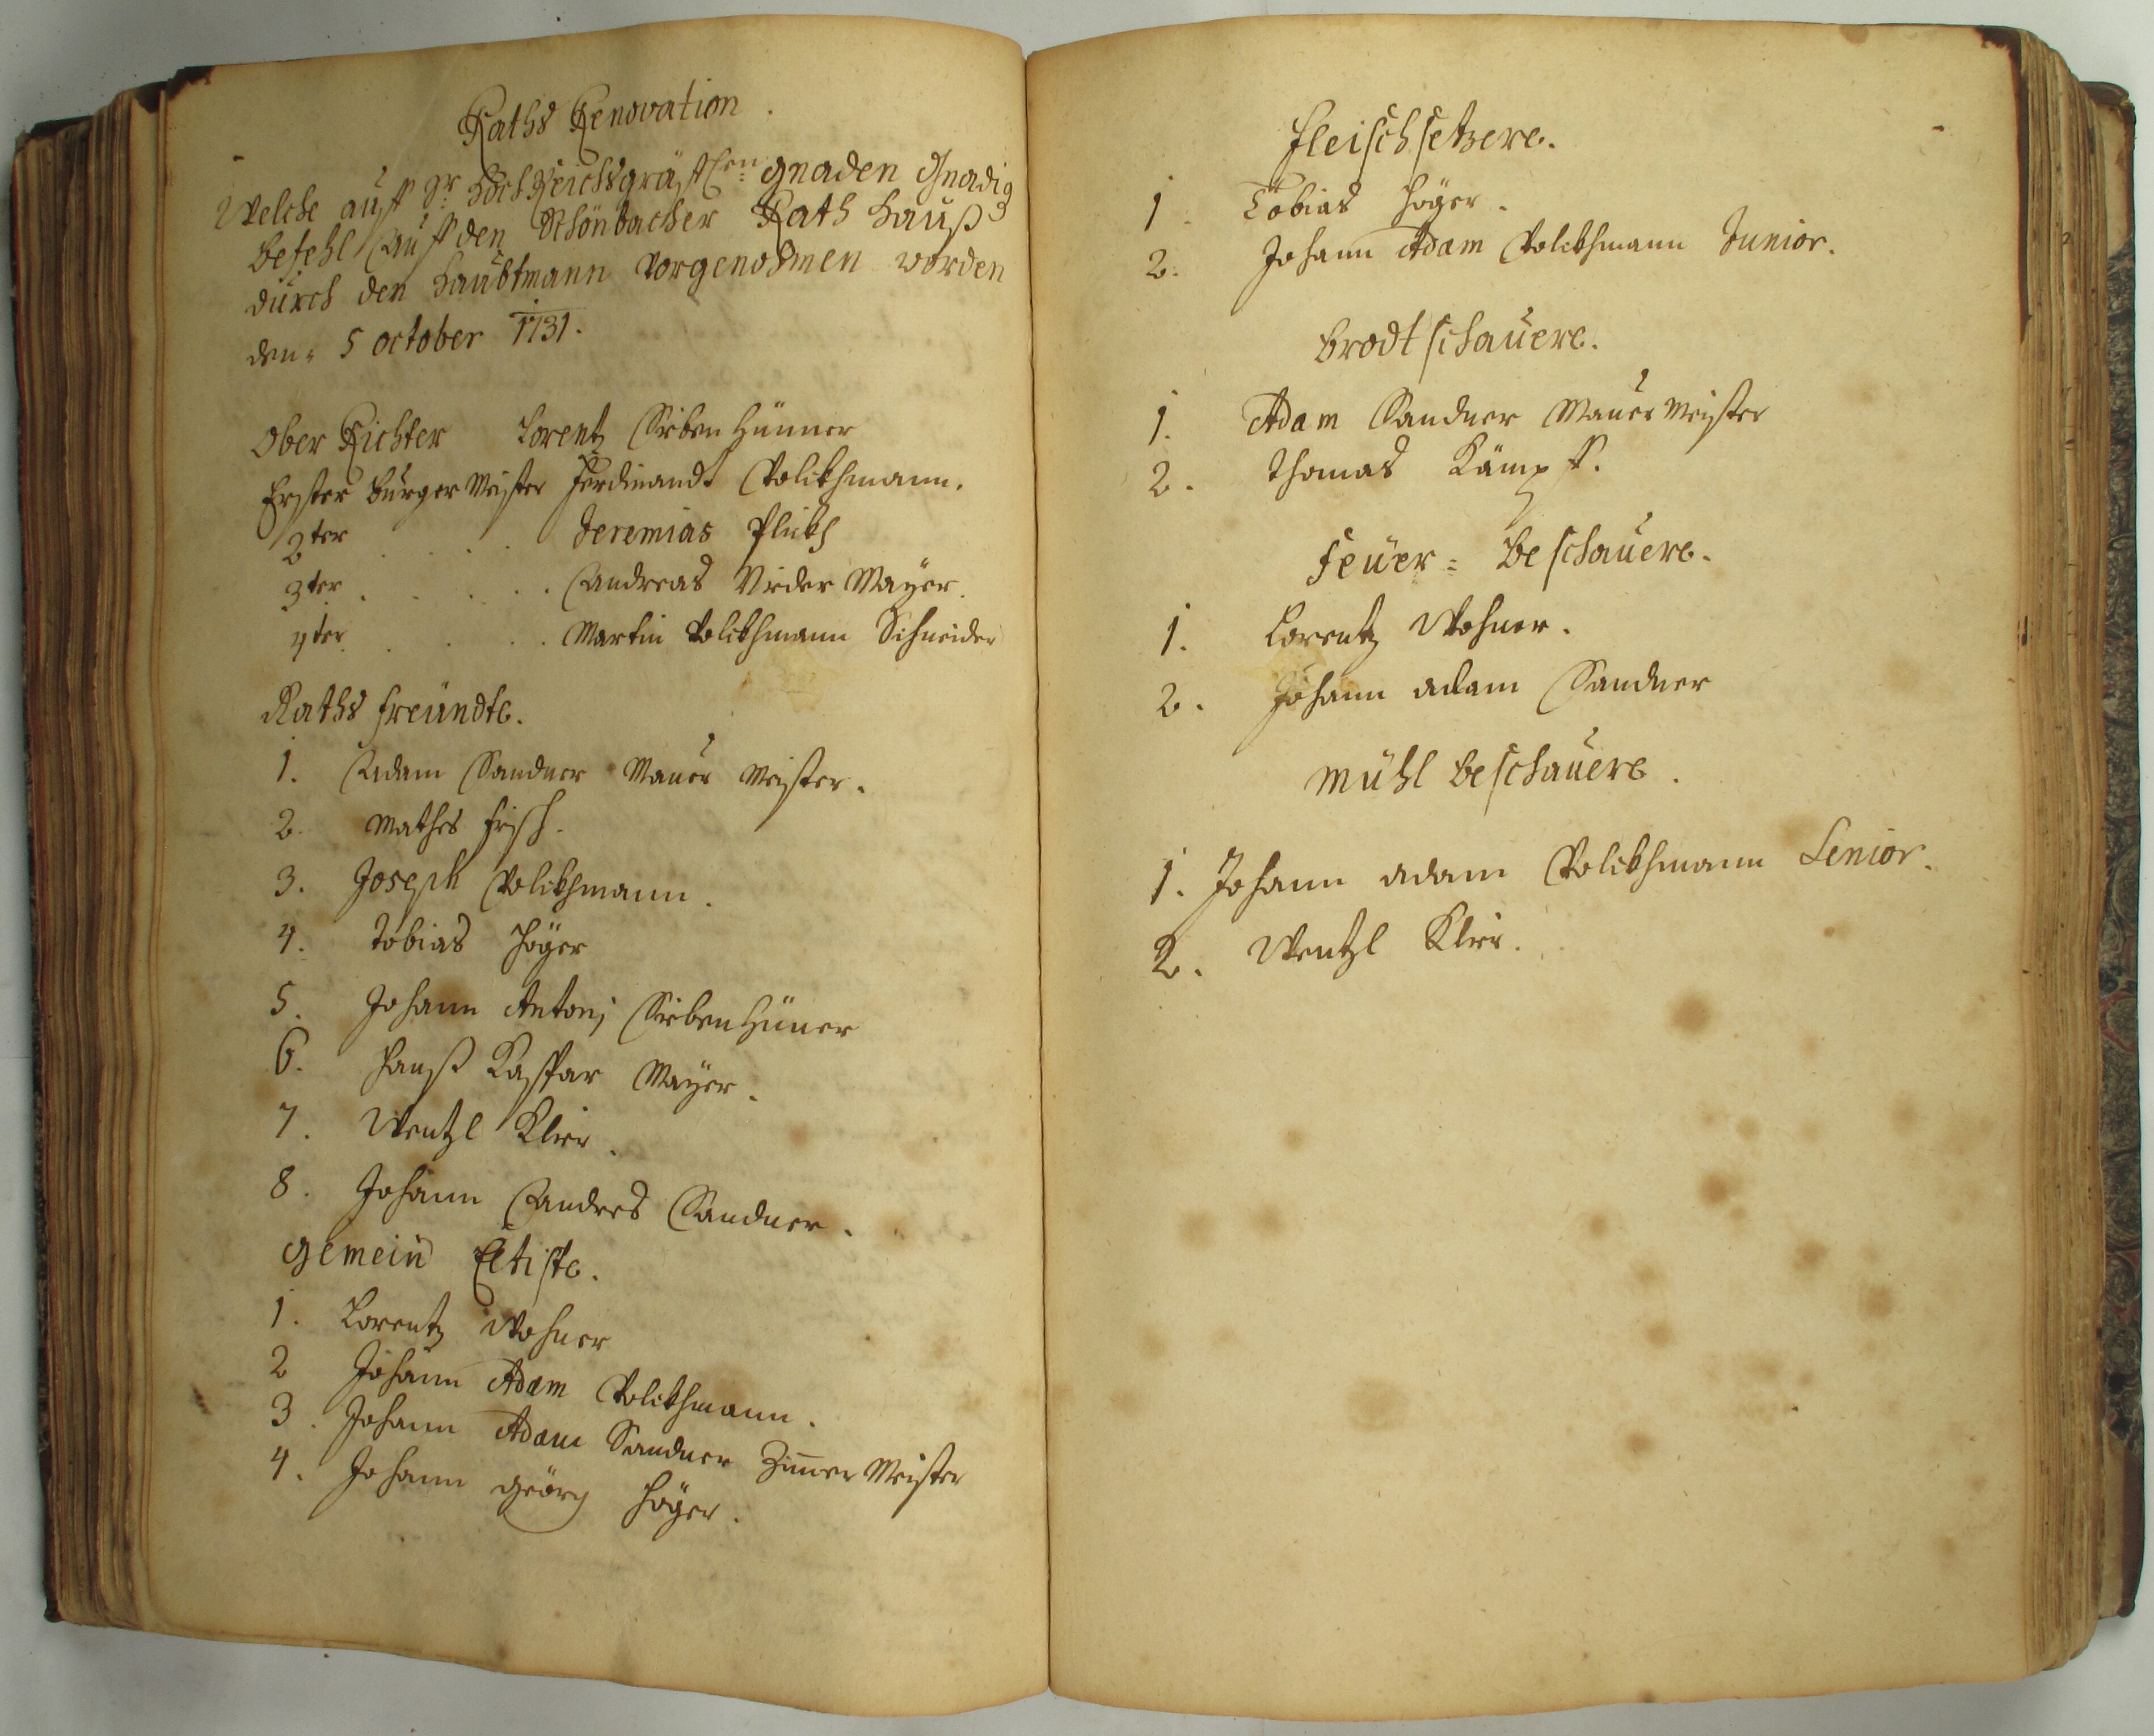 Raths Renovation.
Welche auff Ihr: hoch Reichsgräfflen: gnaden Gnadig
befehl Auff den Schönbacher Rath hauß
durch den haubtmann vorgenohmen worden
den: 5 october 1731.
Ober Richter Lorentz Siben Hünner
Erster burger Meister Ferdinandt Volckhmann.
2ter . . . . Jeremias Plickh
3ter . . . . . Andreas Nider Mayer.
4ter . . . . Martin Volckhmann Schneider
Raths freündte.
1. Adam Sandner Maurer Meister.
2. Mathes Fisch.
3. Joseph Volckhmann.
4. Tobias Höger
5. Johann Antonj Siben Hüner
6. Hanß Caspar Mayer.
7. Wentzl Klier.
8. Johann Andres Sandner.
Gemein Eltiste.
1. Lorentz Wohner
2 Johann Adam Volckhmann.
3. Johann Adam Sandner Zimer Meister
4. Johann Geörg Höger.
Fleischsetzere.
1. Tobias Höger.
2. Johann Adam Volckhmann Junior.
brodtschauere.
1. Adam Sandner Maurer Meister
2. Thomas Kämpff.
Feüer = beschauere.
1. Lorentz Wohner.
2. Johann adam Sandner
Mühl beschauere.
1. Johann adam Volckhmann Senior.
2. Wentzl Klier.